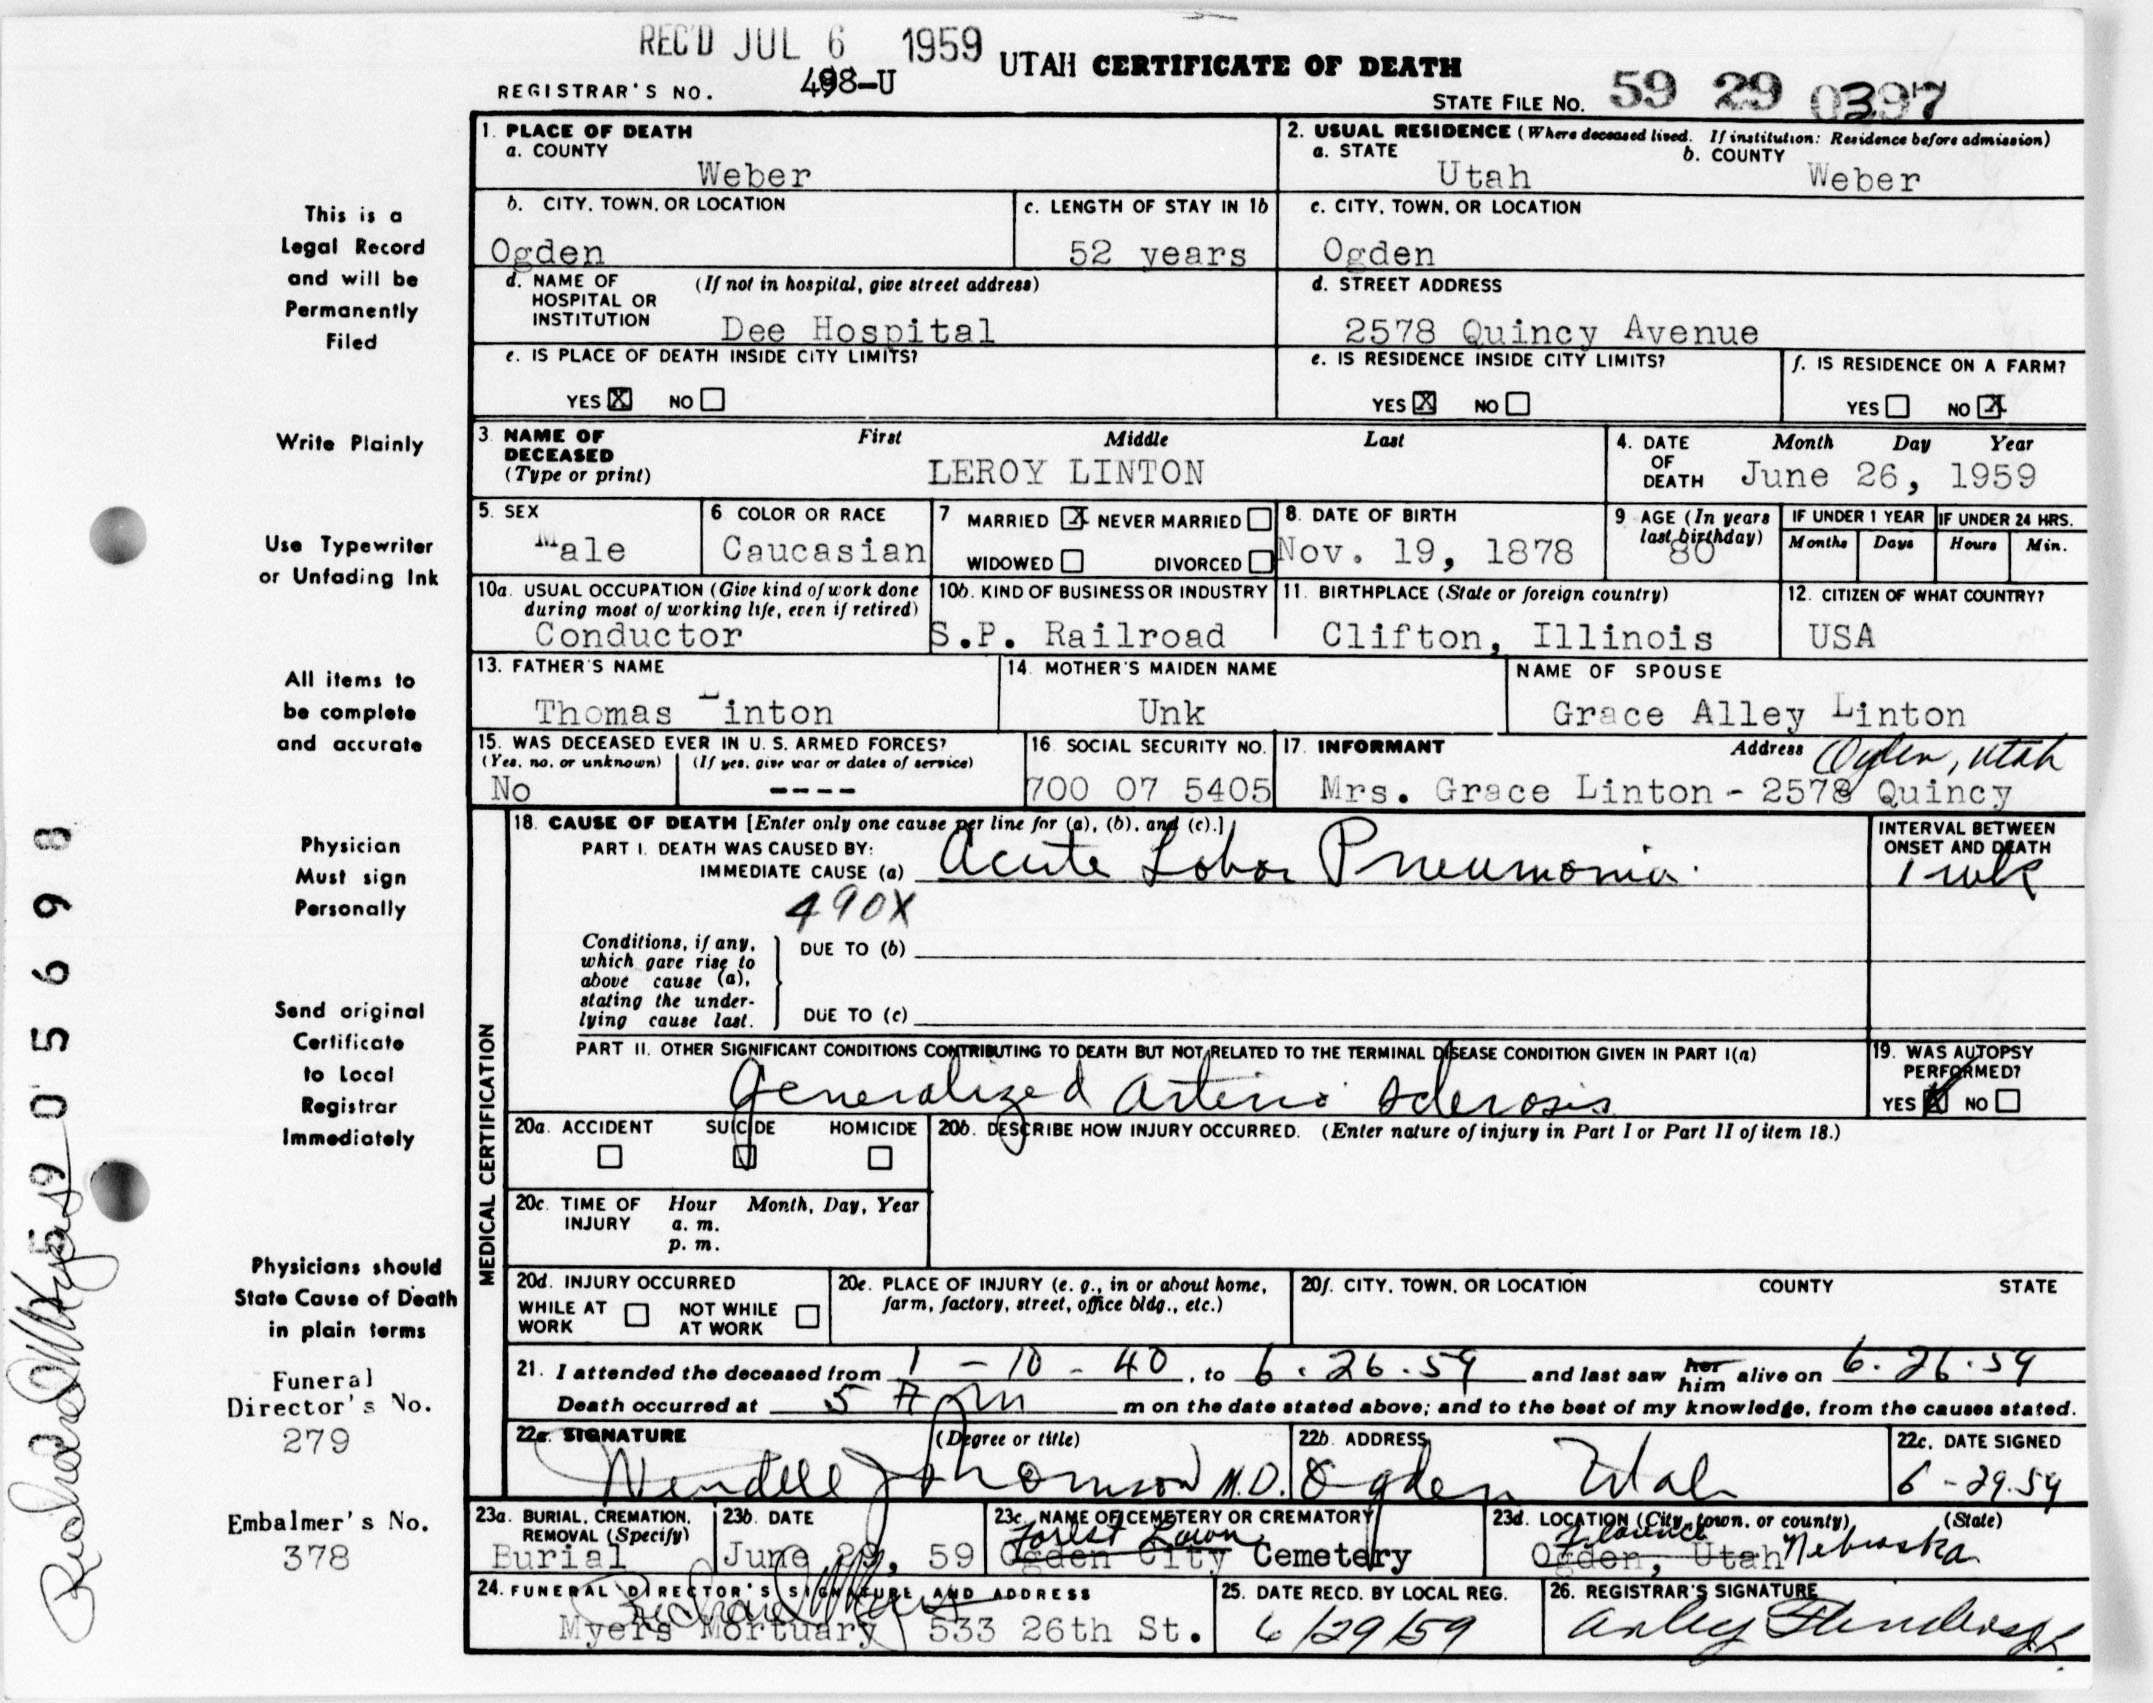 REC'D JUL 6 1959
UTAH CERTIFICATE OF DEATH
REGISTRAR'S NO. 498-U
STATE FILE NO. 59 29 0397
This is a
Legal Record
and will be
Permanently
Filed
Write Plainly
Use Typewriter
or Unfading Ink
All items to
be complete
and accurate
Physician
Must sign
Personally
Send original
Certificate
to Local
Registrar
Immediately
Physicians should
State Cause of Death
in plain terms
Funeral
Director's No.
279
Embalmer's No.
378
1. PLACE OF DEATH
a. COUNTY
Weber
2. USUAL RESIDENCE (Where deceased lived. If institution: Residence before admission)
a. STATE
Utah
b. COUNTY
Weber
b. CITY, TOWN, OR LOCATION
Ogden
c. LENGTH OF STAY IN 1b
52 years
c. CITY, TOWN, OR LOCATION
Ogden
d. NAME OF (If not in hospital, give street address)
HOSPITAL OR
INSTITUTION
Dee Hospital
d. STREET ADDRESS
2578 Quincy Avenue
e. IS PLACE OF DEATH INSIDE CITY LIMITS?
YES X NO
e. IS RESIDENCE INSIDE CITY LIMITS?
YES X NO
f. IS RESIDENCE ON A FARM?
YES NO X
3. NAME OF First Middle Last
DECEASED
(Type or print)
LEROY LINTON
4. DATE Month Day Year
OF
DEATH June 26, 1959
5. SEX
Male
6 COLOR OR RACE
Caucasian
7 MARRIED X NEVER MARRIED
WIDOWED DIVORCED
8. DATE OF BIRTH
Nov. 19, 1878
9 AGE (In years
last birthday)
80
IF UNDER 1 YEAR IF UNDER 24 HRS.
Months Days Hours Min.
10a. USUAL OCCUPATION (Give kind of work done
during most of working life, even if retired)
Conductor
10b. KIND OF BUSINESS OR INDUSTRY
S.P. Railroad
11. BIRTHPLACE (State or foreign country)
Clifton, Illinois
12. CITIZEN OF WHAT COUNTRY?
USA
13. FATHER'S NAME
Thomas Linton
14. MOTHER'S MAIDEN NAME
Unk
NAME OF SPOUSE
Grace Alley Linton
15. WAS DECEASED EVER IN U. S. ARMED FORCES?
(Yes, no, or unknown) (If yes, give war or dates of service)
No ----
16. SOCIAL SECURITY NO.
700 07 5405
17. INFORMANT Address Ogden, Utah
Mrs. Grace Linton - 2578 Quincy
MEDICAL CERTIFICATION
18. CAUSE OF DEATH [Enter only one cause per line for (a), (b), and (c).]
PART I. DEATH WAS CAUSED BY:
IMMEDIATE CAUSE (a) Acute Lobar Pneumonia.
INTERVAL BETWEEN
ONSET AND DEATH
1 wk
490X
Conditions, if any,
which gave rise to
above cause (a),
stating the under-
lying cause last.
DUE TO (b)
DUE TO (c)
PART II. OTHER SIGNIFICANT CONDITIONS CONTRIBUTING TO DEATH BUT NOT RELATED TO THE TERMINAL DISEASE CONDITION GIVEN IN PART I(a)
Generalized Arterio sclerosis
19. WAS AUTOPSY
PERFORMED?
YES X NO
20a. ACCIDENT SUICIDE HOMICIDE
20b. DESCRIBE HOW INJURY OCCURRED. (Enter nature of injury in Part I or Part II of item 18.)
20c. TIME OF Hour Month, Day, Year
INJURY a. m.
p. m.
20d. INJURY OCCURRED
WHILE AT WORK NOT WHILE AT WORK
20e. PLACE OF INJURY (e. g., in or about home,
farm, factory, street, office bldg., etc.)
20f. CITY, TOWN, OR LOCATION COUNTY STATE
21. I attended the deceased from 1 - 10 - 40, to 6.26.59 and last saw her him alive on 6.26.59
Death occurred at 5 A m m on the date stated above; and to the best of my knowledge, from the causes stated.
22a. SIGNATURE (Degree or title)
Wendell J Thomson M.D.
22b. ADDRESS
Ogden Utah
22c. DATE SIGNED
6-29.59
23a. BURIAL, CREMATION,
REMOVAL (Specify)
Burial
23b. DATE
June 29, 59
23c. NAME OF CEMETERY OR CREMATORY
Forest Lawn
Ogden City Cemetery
23d. LOCATION (City, town, or county) (State)
Florence Nebraska
Ogden, Utah
24. FUNERAL DIRECTOR'S SIGNATURE AND ADDRESS
Richard W Myers
Myers Mortuary 533 26th St.
25. DATE RECD. BY LOCAL REG.
6/29/59
26. REGISTRAR'S SIGNATURE
Richard W Myers
59 05698